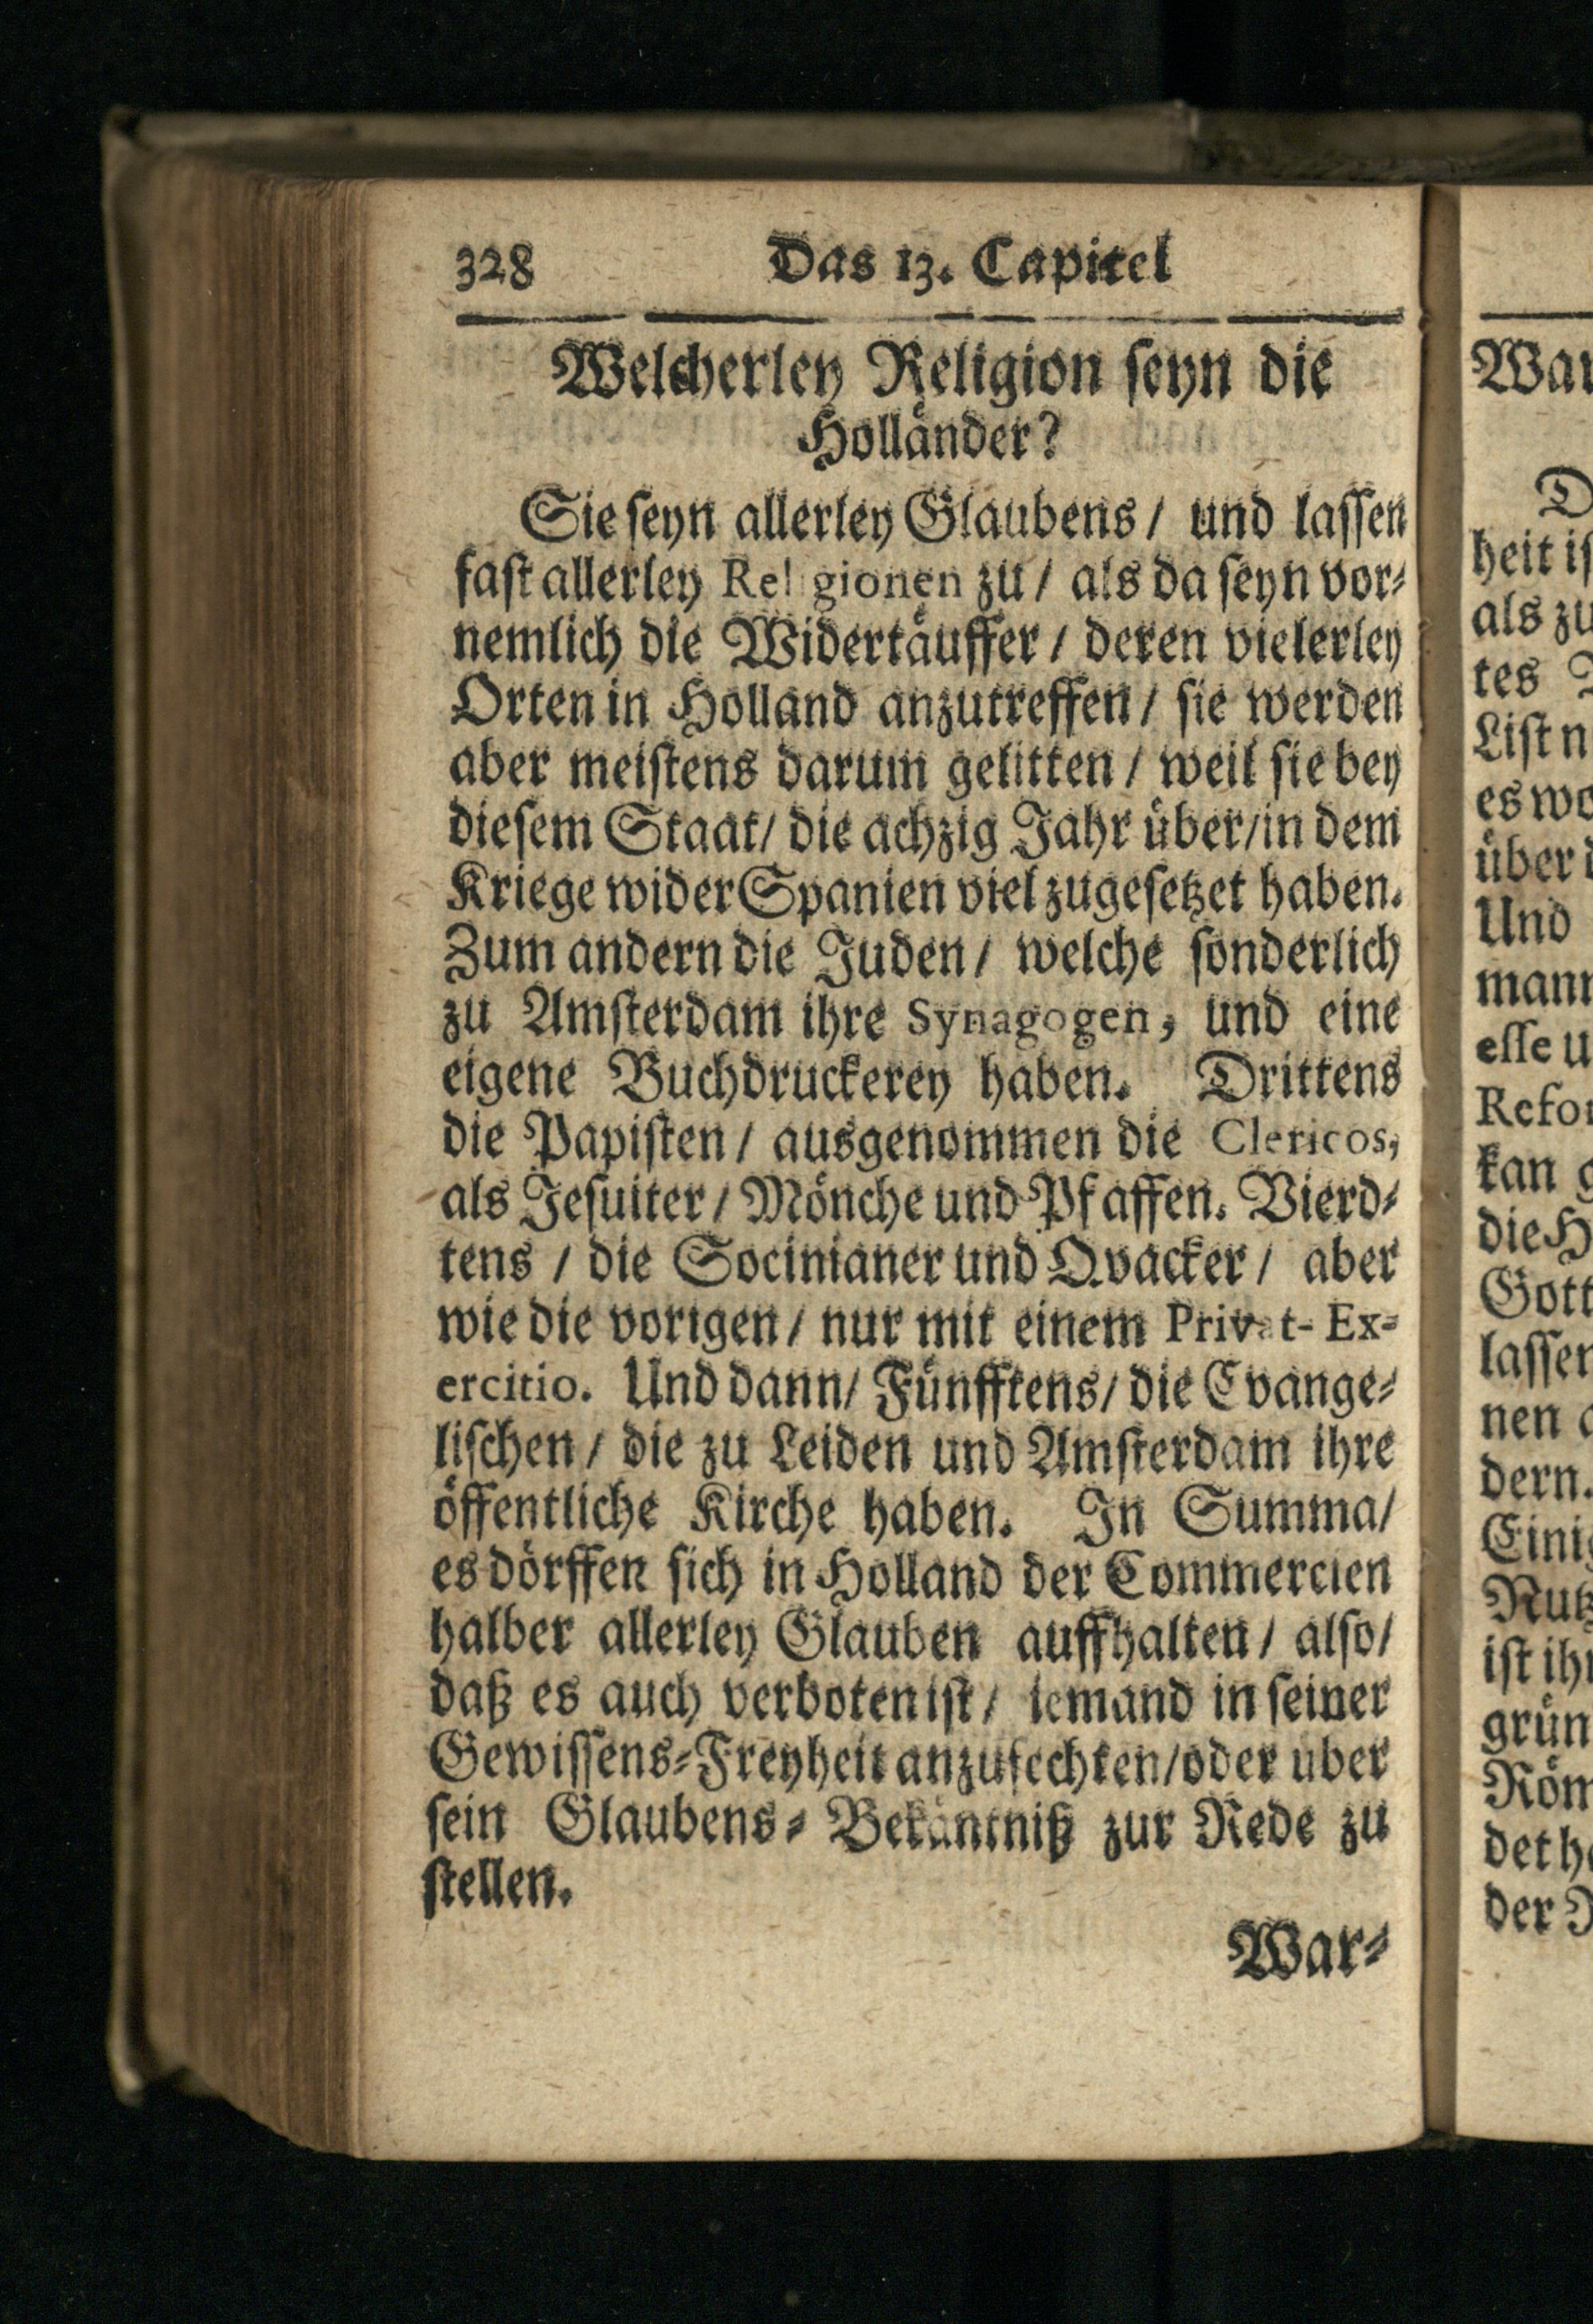 328 Das 13. Capitel
Welcherley Religion ſeyn die
Holländer?
Sie ſeyn allerley Glaubens / und laſſen
faſt allerley Religionen zu / als da ſeyn vor⸗
nemlich die Widertäuffer / deren vielerley
Orten in Holland anzutreffen / ſie werden
aber meiſtens darum gelitten / weil ſie bey
dieſem Staat / die achzig Jahr über / in dem
Kriege wider Spanien viel zugeſetzet haben.
Zum andern die Juden / welche ſonderlich
zu Amſterdam ihre Synagogen, und eine
eigene Buchdruckerey haben. Drittens
die Papiſten / ausgenommen die Clericos,
als Jeſuiter / Mönche und Pfaffen. Vierd⸗
tens / die Socinianer und Qvacker / aber
wie die vorigen / nur mit einem Privat- Ex-
ercitio. Und dann / Fünfftens / die Evange⸗
liſchen / die zu Leiden und Amſterdam ihre
öffentliche Kirche haben. In Summa /
es dörffen ſich in Holland der Commercien
halber allerley Glauben auffhalten / alſo /
daß es auch verboten iſt / iemand in ſeiner
Gewiſſens⸗Freyheit anzufechten / oder uber
ſein Glaubens⸗Bekäntniß zur Rede zu
ſtellen.
War⸗